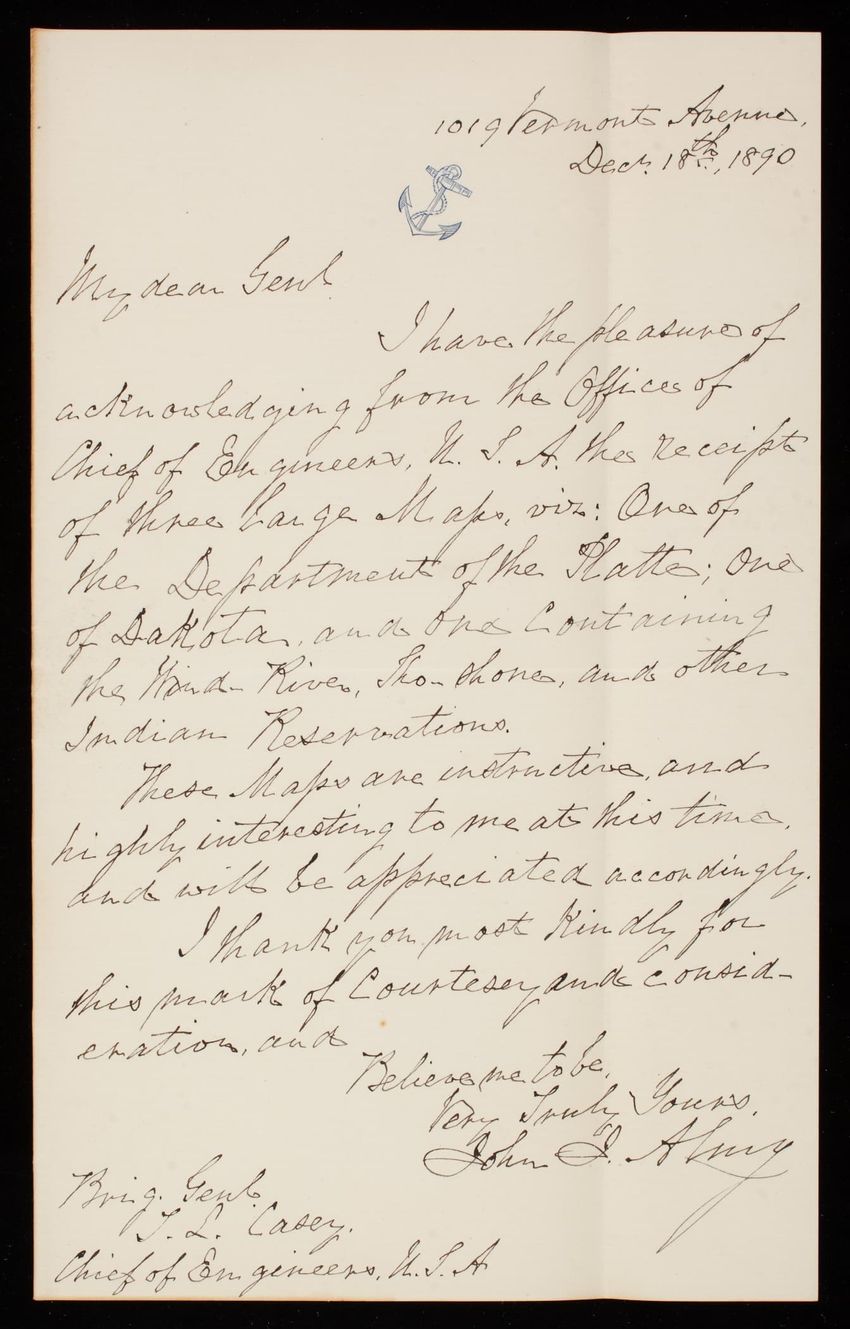 1019 Vermont Avenue,
Dec. 18th, 1890
My dear Genl.
I have the pleasure of
acknowledging from the Office of
Chief of Engineers, U. S. A. the receipt
of three large Maps, viz: One of
the Department of the Platte; One
of Dakota, and One Containing
the Wind River, Sho-shone, and other
Indian Reservations.
These Maps are instructive, and
highly interesting to me at this time,
and will be appreciated accordingly.
I thank you most Kindly for
this mark of Courtesey and consid-
eration, and
Believe me to be,
Very Truly Yours,
John J. Almy
Brig. Genl.
T. L. Casey.
Chief of Engineers, U. S. A